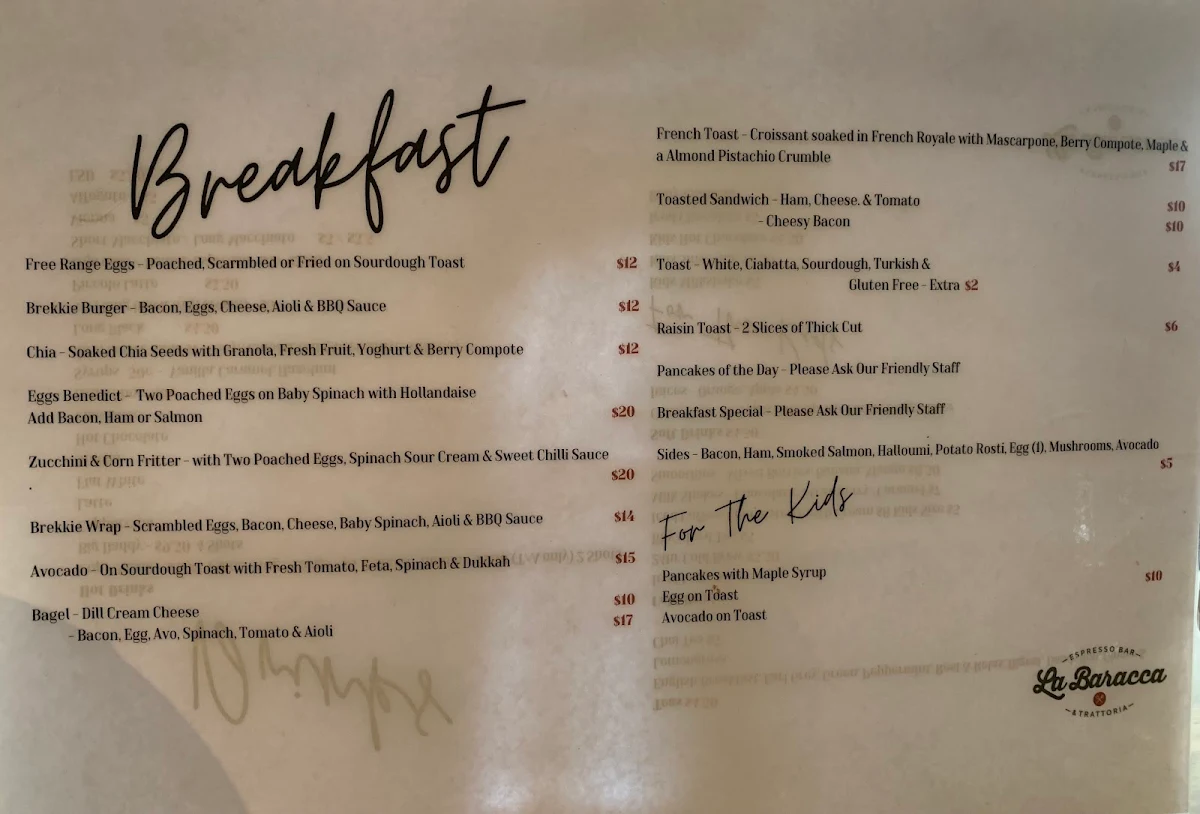 Breakfast
Free Range Eggs - Poached, Scarmbled or Fried on Sourdough Toast $12
Brekkie Burger - Bacon, Eggs, Cheese, Aioli & BBQ Sauce $12
Chia - Soaked Chia Seeds with Granola, Fresh Fruit, Yoghurt & Berry Compote $12
Eggs Benedict - Two Poached Eggs on Baby Spinach with Hollandaise
Add Bacon, Ham or Salmon $20
Zucchini & Corn Fritter - with Two Poached Eggs, Spinach Sour Cream & Sweet Chilli Sauce
. $20
Brekkie Wrap - Scrambled Eggs, Bacon, Cheese, Baby Spinach, Aioli & BBQ Sauce $14
Avocado - On Sourdough Toast with Fresh Tomato, Feta, Spinach & Dukkah $15
Bagel - Dill Cream Cheese $10
- Bacon, Egg, Avo, Spinach, Tomato & Aioli $17
French Toast - Croissant soaked in French Royale with Mascarpone, Berry Compote, Maple &
a Almond Pistachio Crumble $17
Toasted Sandwich - Ham, Cheese. & Tomato $10
- Cheesy Bacon $10
Toast - White, Ciabatta, Sourdough, Turkish & $4
Gluten Free - Extra $2
Raisin Toast - 2 Slices of Thick Cut $6
Pancakes of the Day - Please Ask Our Friendly Staff
Breakfast Special - Please Ask Our Friendly Staff
Sides - Bacon, Ham, Smoked Salmon, Halloumi, Potato Rosti, Egg (1), Mushrooms, Avocado
$5
For The Kids
Pancakes with Maple Syrup $10
Egg on Toast
Avocado on Toast
ESPRESSO BAR
La Baracca
& TRATTORIA